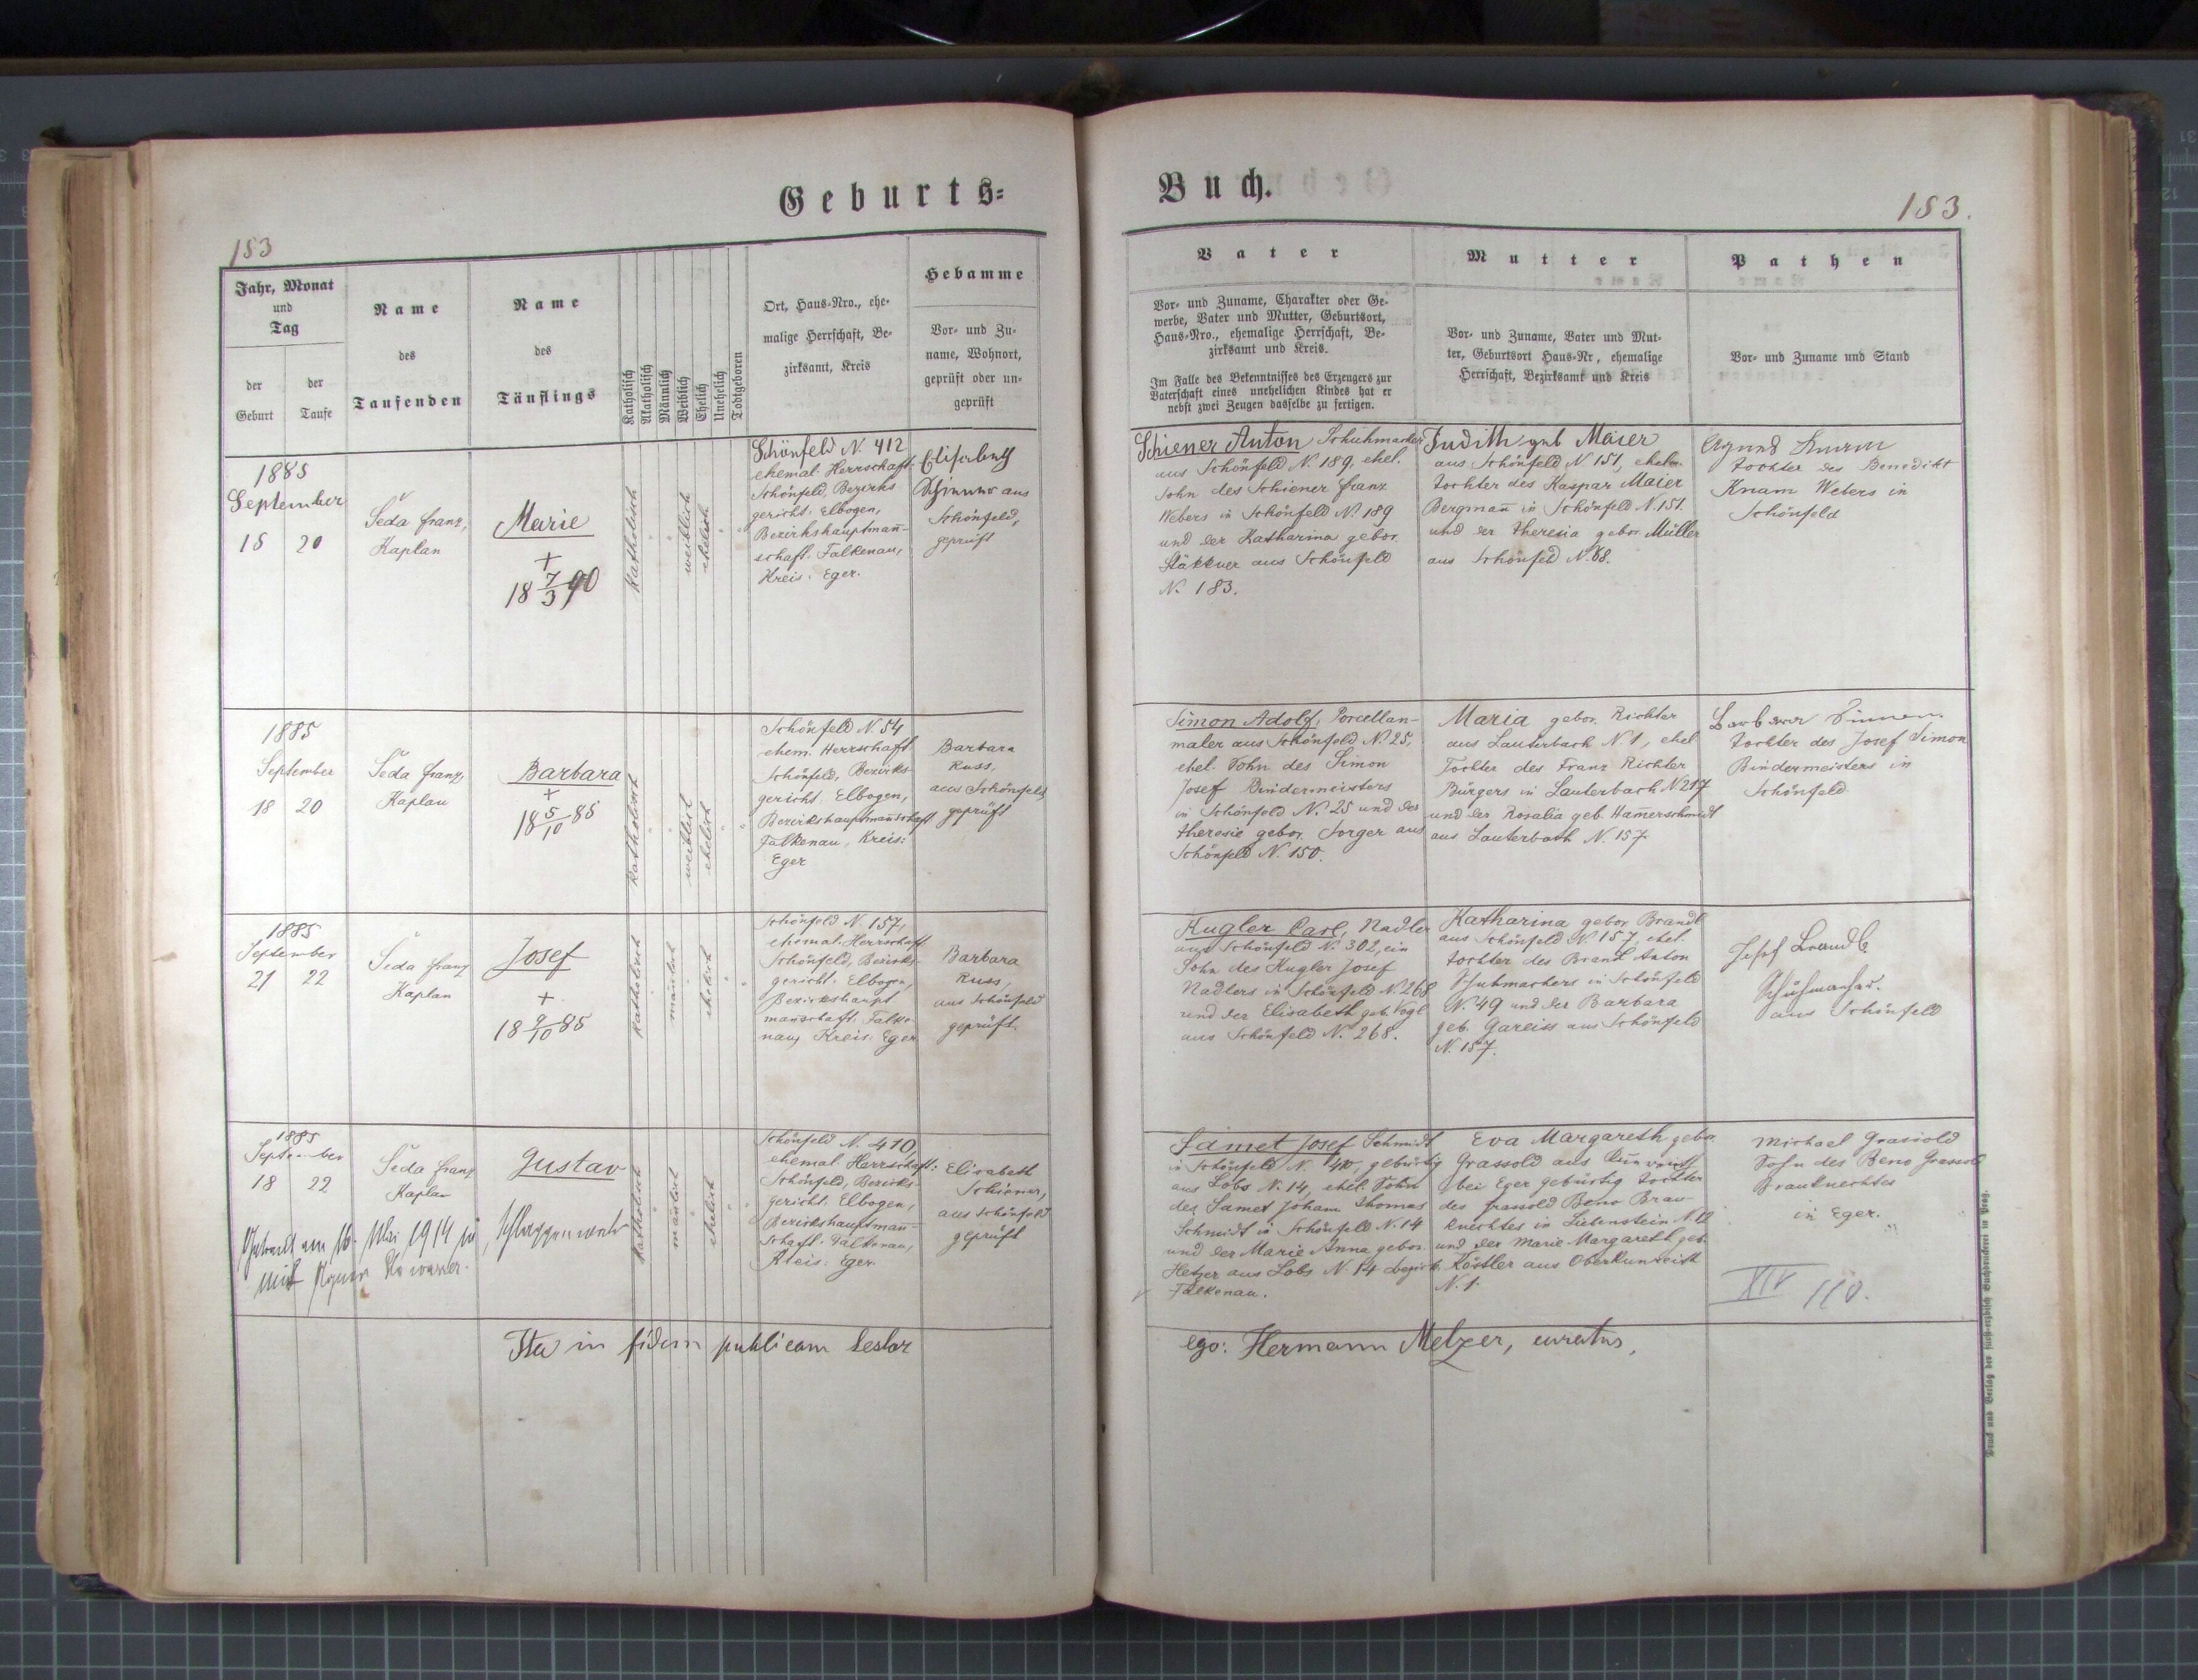 Geburts-
Buch.
183
183.
Jahr, Monat
und
Tag
der
Geburt
der
Taufe
Name
des
Taufenden
Name
des
Täuflings
Katholisch
Akatholisch
Männlich
Weiblich
Ehelich
Unehelich
Todtgeboren
Ort, Haus-Nro., ehe-
malige Herrschaft, Be-
zirksamt, Kreis
Hebamme
Vor- und Zu-
name, Wohnort,
geprüft oder un-
geprüft
Vater
Vor- und Zuname, Charakter oder Ge-
werbe, Vater und Mutter, Geburtsort,
Haus-Nro., ehemalige Herrschaft, Be-
zirksamt und Kreis.
Im Falle des Bekenntnisses des Erzeugers zur
Vaterschaft eines unehelichen Kindes hat er
nebst zwei Zeugen dasselbe zu fertigen.
Mutter
Vor- und Zuname, Vater und Mut-
ter, Geburtsort Haus-Nr, ehemalige
Herrschaft, Bezirksamt und Kreis
Pathen
Vor- und Zuname und Stand
1885
September
18 20
Šeda Franz,
Kaplan
Marie
+
18 7/3 90
katholisch
weiblich
ehelich
Schönfeld N. 412
ehemal. Herrschaft:
Schönfeld, Bezirks
gericht: Elbogen,
Bezirkshauptmañ-
schaft: Falkenau,
Kreis: Eger.
Elisabeth
Schiener aus
Schönfeld,
geprüft
Schiener Anton Schuhmacher
aus Schönfeld N. 189, ehel.
Sohn des Schiener Franz
Webers in Schönfeld N. 189
und der Katharina gebor.
aus Schönfeld
N. 183.
Judith geb Maier
aus Schönfeld N 151, ehel.
tochter des Kaspar Maier
Bergmañ in Schönfeld N. 151.
und der Theresia gebor. Müller
aus Schönfeld N. 88.
Agnes
tochter des Benedikt
Knam Webers in
Schönfeld
1885
September
18 20
Šeda Franz,
Kaplan
Barbara
+
18 5/10 85
katholisch
weiblich
ehelich
Schönfeld N. 54
ehem. Herrschaft
Schönfeld, Bezirks-
gericht: Elbogen,
Bezirkshauptmañschaft
Falkenau, Kreis:
Eger
Barbara
Russ,
aus Schönfeld,
geprüft
Simon Adolf, Porcellan-
maler aus Schönfeld N. 25,
ehel. Sohn des Simon
Josef Bindermeisters
in Schönfeld N. 25 und der
Theresie gebor. Sorger aus
Schönfeld N. 150.
Maria gebor. Richter
aus Lauterbach N. 1, ehel
Tochter des Franz Richter
Bürgers in Lauterbach N 217
und der Rosalia geb. Ham̄erschmidt
aus Lauterbach N. 157
Barbara Simon
tochter des Josef Simon
Bindermeisters in
Schönfeld
1885
September
21 22
Šeda Franz
Kaplan
Josef
+
18 9/10 85
katholisch
mänlich
ehelich
Schönfeld N. 157,
ehemal. Herrschaft
Schönfeld, Bezirks-
gericht: Elbogen,
Bezirkshaupt
manschaft: Falke-
nau, Kreis: Eger
Barbara
Russ,
aus Schönfeld
geprüft.
Kugler Carl, Nadler
aus Schönfeld N. 302, ein
Sohn des Kugler Josef
Nadlers in Schönfeld N. 268
und der Elisabeth geb. Vogl
aus Schönfeld N. 268.
Katharina gebor. Brandl
aus Schönfeld N. 157, ehel.
tochter des Brandl Anton
Schuhmachers in Schönfeld
N. 49 und der Barbara
geb. Gareiss aus Schönfeld
N. 157.
Josef Brandl
Schuhmacher.
aus Schönfeld
1885
September
18 22
Šeda Franz
Kaplan
Gustav
Getraut am 16. Mai 1914 in Schlaggenwald
mit
katholisch
mänlich
ehelich
Schönfeld N. 410,
ehemal. Herrschaft:
Schönfeld, Bezirks-
gericht: Elbogen,
Bezirkshauptmañ-
schaft: Falkenau,
Kreis: Eger.
Elisabeth
Schiener,
aus Schönfeld
geprüft
Samet Josef Schmidt
in Schönfeld N. 410, gebürtig
aus Lobs N. 14, ehel. Sohn
des Samet Johann Thomas
Schmidt in Schönfeld N. 14
und der Marie Anna gebor.
Hetzer aus Lobs N. 14 bezirk
Falkenau.
Eva Margareth gebor.
Grassold aus
bei Eger gebürtig tochter
des Grassold Beno Brau-
knechtes in Liebenstein N. 12
und der Marie Margareth geb.
Köstler aus Oberkunreith
N. 1.
Michael Grassold
Sohn des Beno Grassold
Brauknechtes
in Eger.
XIV 110.
Ita in fidem publicam testor
ego: Hermann Melzer, curatus,
Druck und Verlag der fürst-erzbisch Buchdruckerei in Prag.